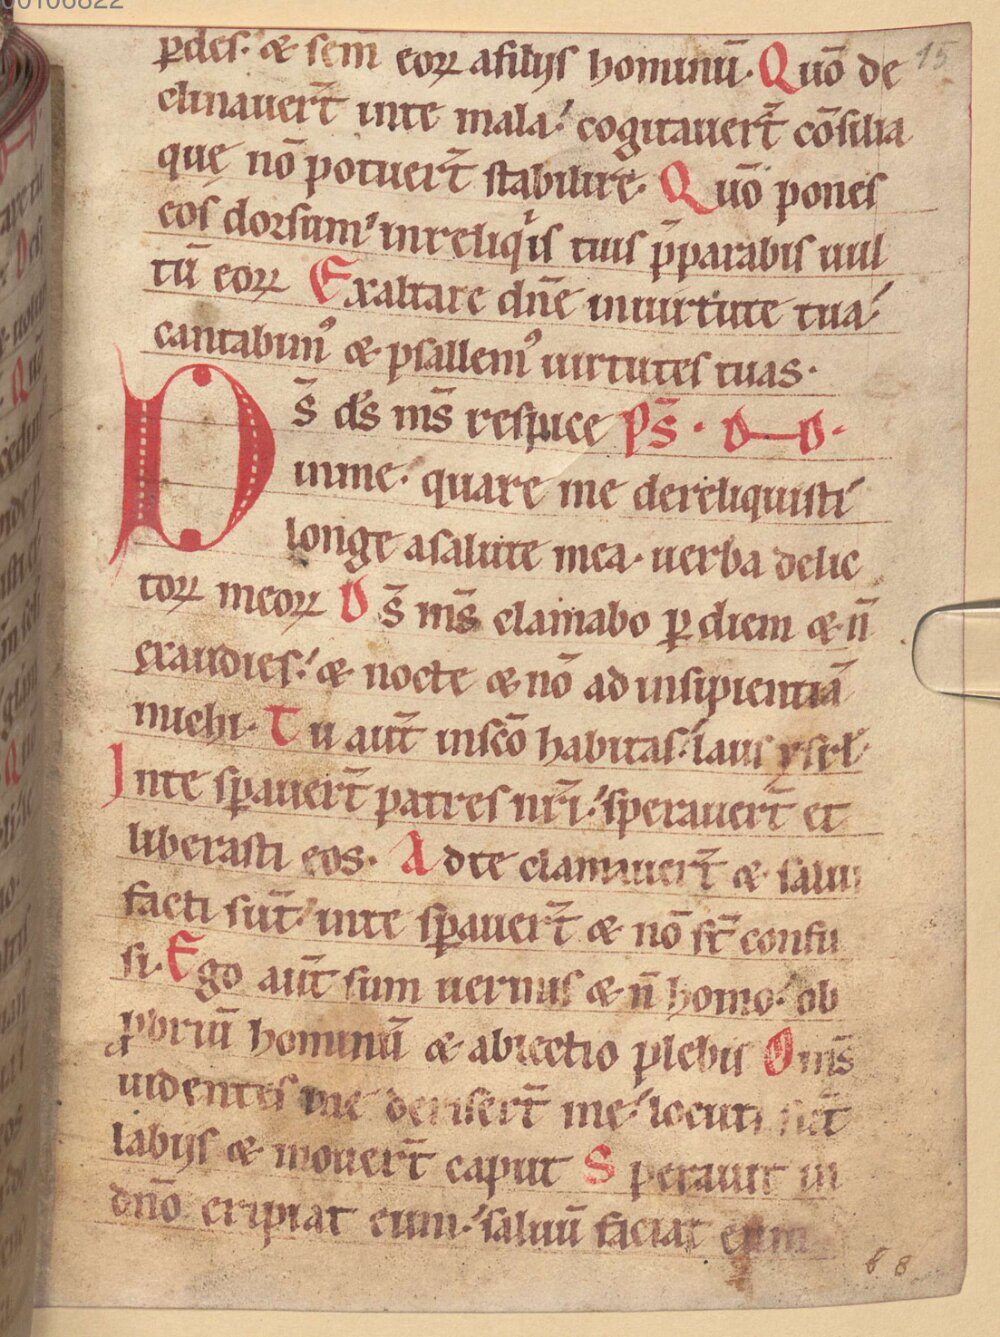 00106822
15
ꝑdes.' ⁊ sem̄ eoꝝ afilijs hominū. Quō de
clinauert̄ inte mala.' cogitauert̄ cōsilia
quę nō potuert̄ stabilire. Quō pones
eos dorsum.' inreliqͥis tuis p̄parabis uul
tū eoꝝ Exaltare dn̄e inuirtute tua.'
cantabimꝰ ⁊ psallemꝰ uirtutes tuas.
Ds̄ ds̄ ms̄ respice ps̄. D D.
inme. quare me dereliquisti
longe asalute mea. uerba delic
toꝝ meoꝝ Ds̄ ms̄ clamabo ꝑ diem ⁊ n̄
exaudies.' ⁊ nocte ⁊ nō ad insipientiā
michi. Tu aut̄ insc̄o habitas.' laus ysrl̄.
Inte sꝑauert̄ patres nr̄i.' sperauert̄ et
liberasti eos. Adte clamauert̄ ⁊ salui
facti sūt.' inte sꝑauert̄ ⁊ nō st̄ confu
si. Ego aut̄ sum uermis ⁊ n̄ homo.' ob
ꝓbriū hominū ⁊ abiectio plebis Oms̄
uidentes me derisert̄ me.' locuti sūt
labijs ⁊ mouert̄ caput Sperauit in
dn̄o eripiat eum.' saluū faciat eum
68